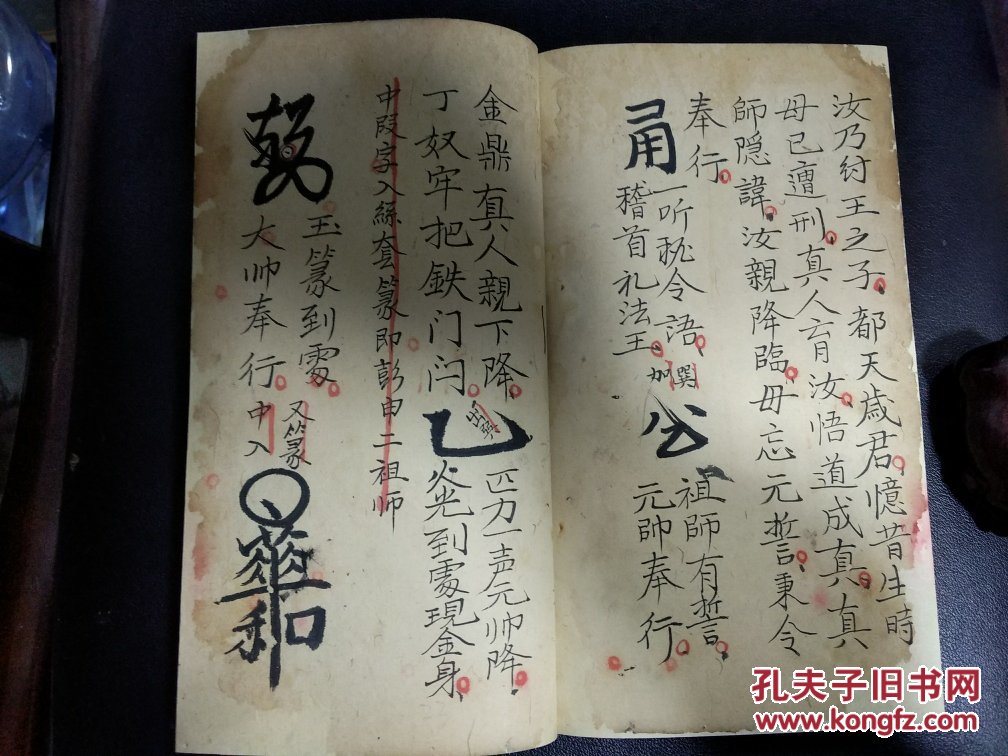 汝乃纣王之子都天歳君憶昔生時
母已遭刑真人育汝悟道成真真
師隠諱汝親降臨毋忘元誓秉令
奉行
一听秘令語
稽首礼法王
加
祖師有誓
元帥奉行
金鼎真人親下降
丁奴牢把鉄门闩
出
匹力一声元帅降
火光到處現金身
中段字入絲套篆即彭申二祖师
玉篆到處
大帅奉行
又篆
中入
孔夫子旧书网
www.kongfz.com